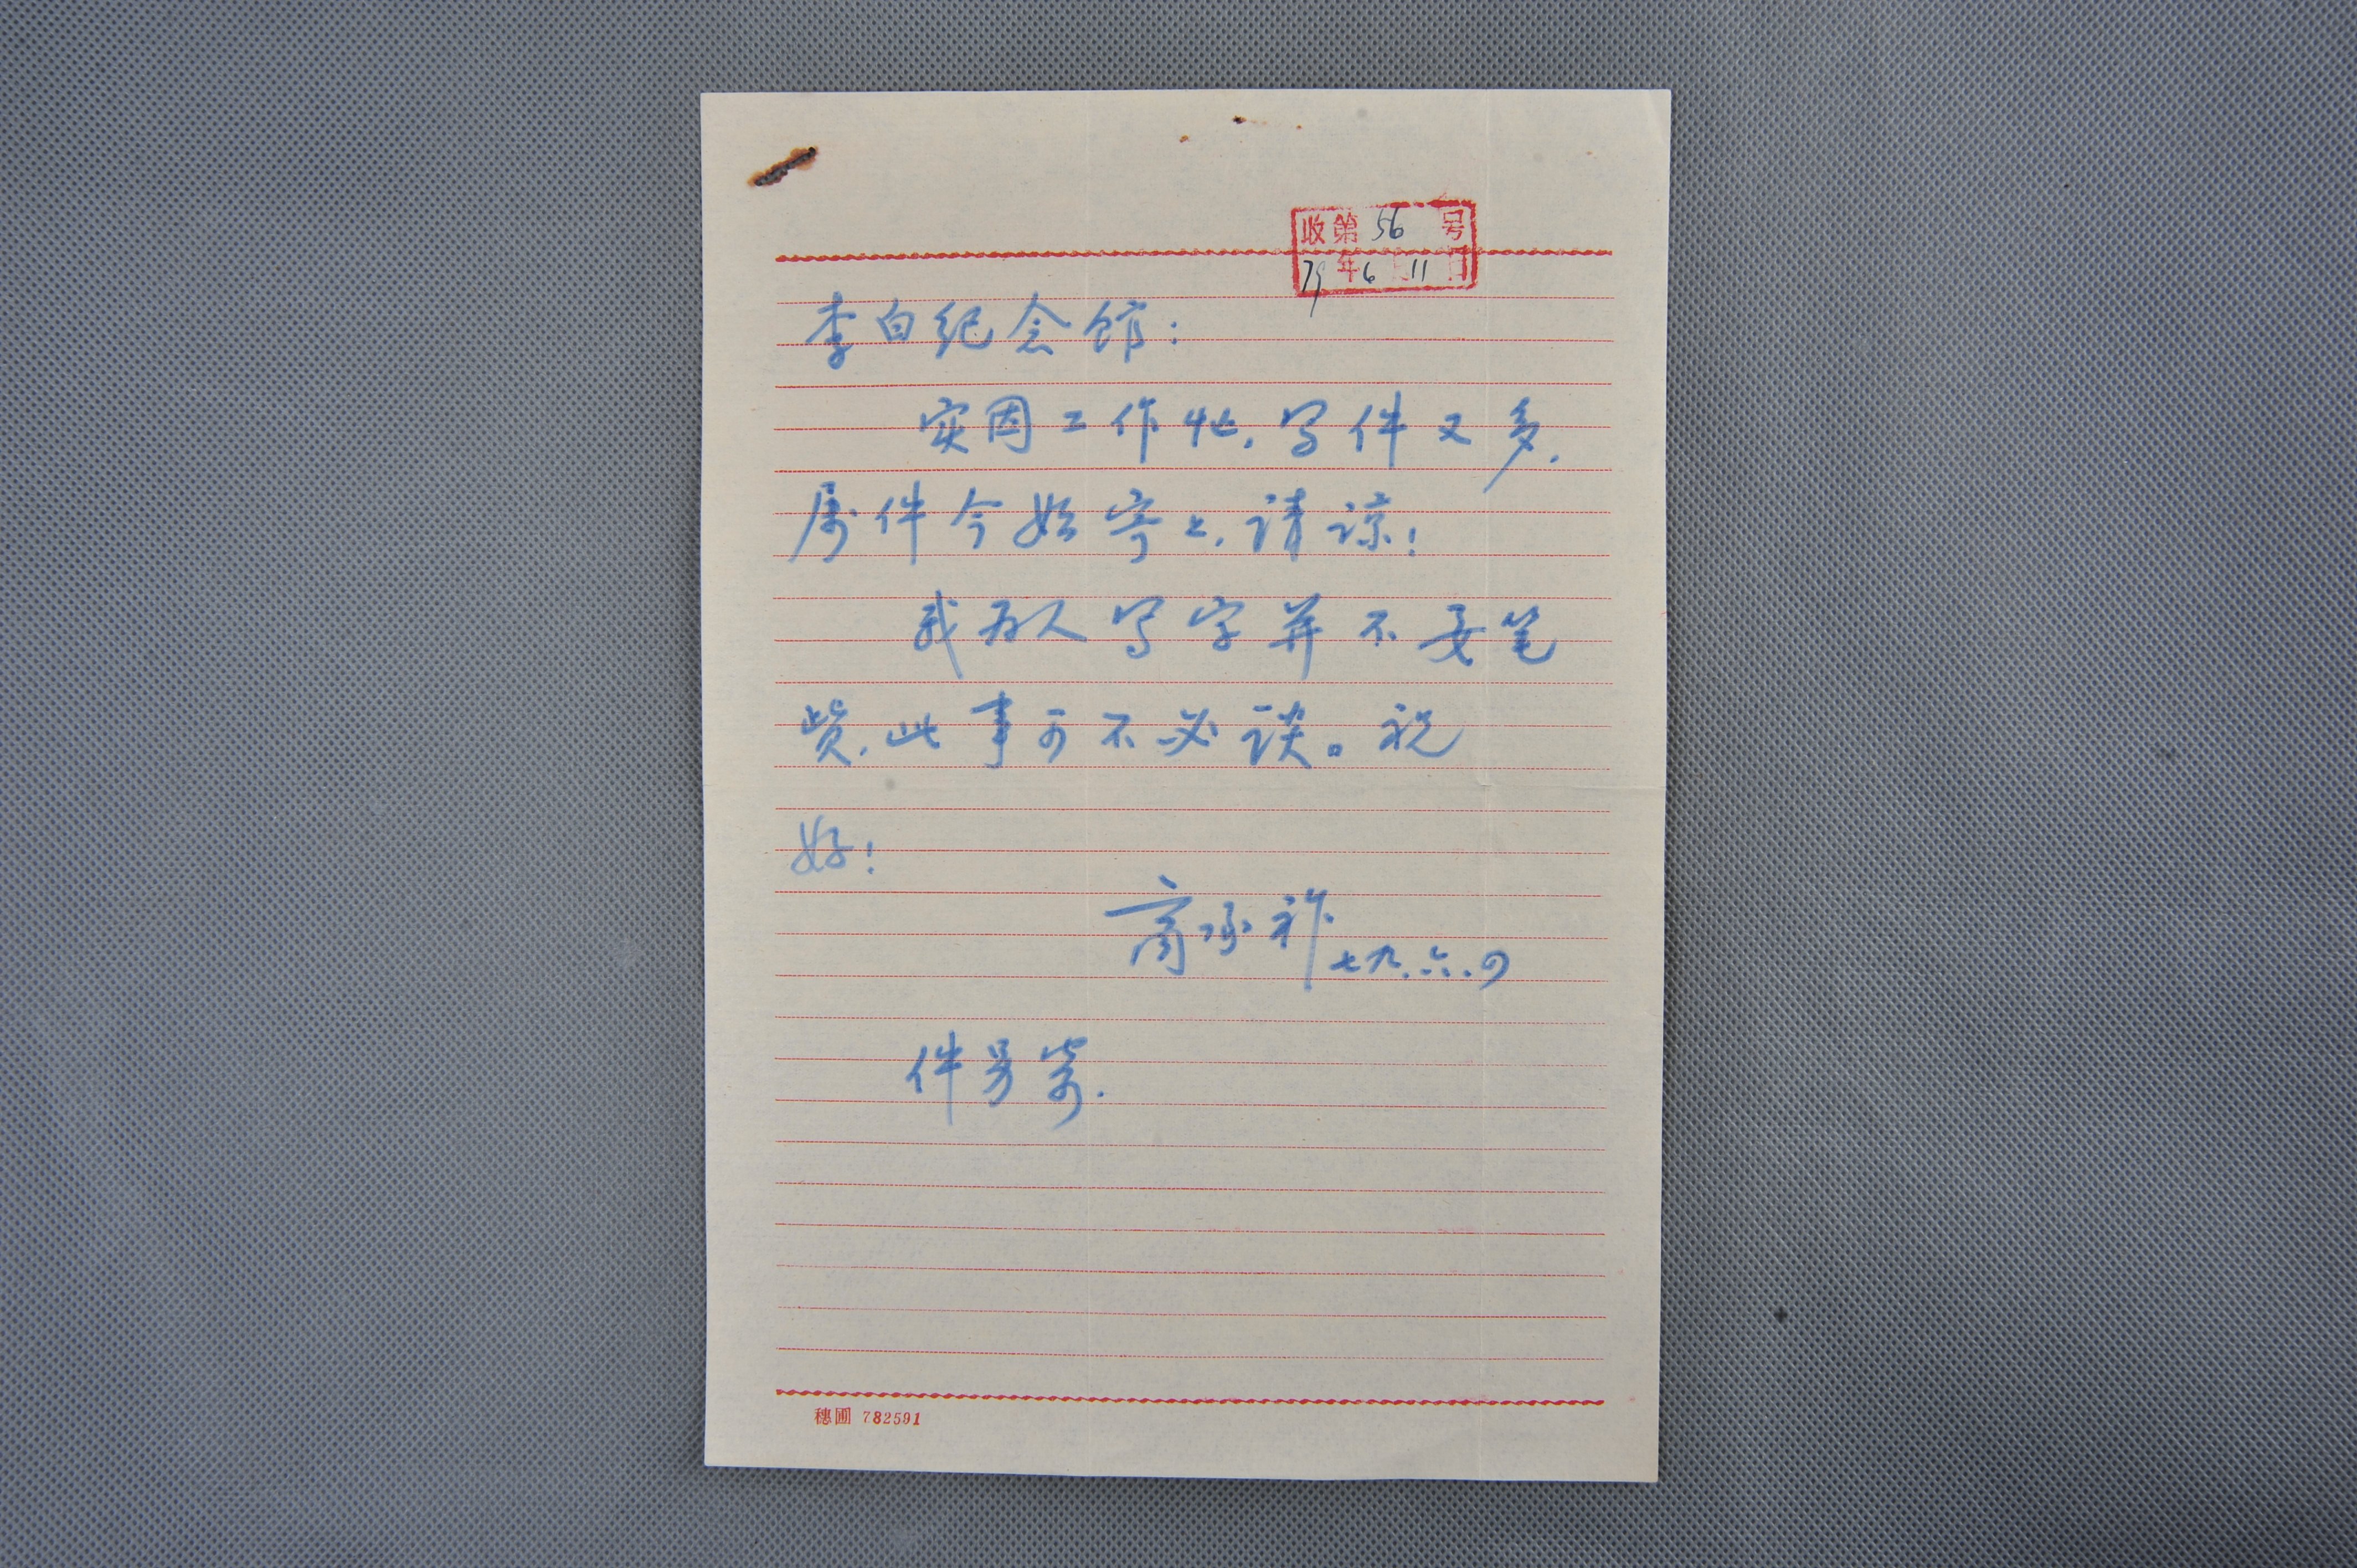 收第56号
79年6月11日
李白纪念馆：
实因工作忙，写件又多，
属件今始寄上，请谅！
我为人写字并不要笔
赀，此事可不必谈。祝
好！
商承祚 七九.六.四
件另寄.
穗圃 782591